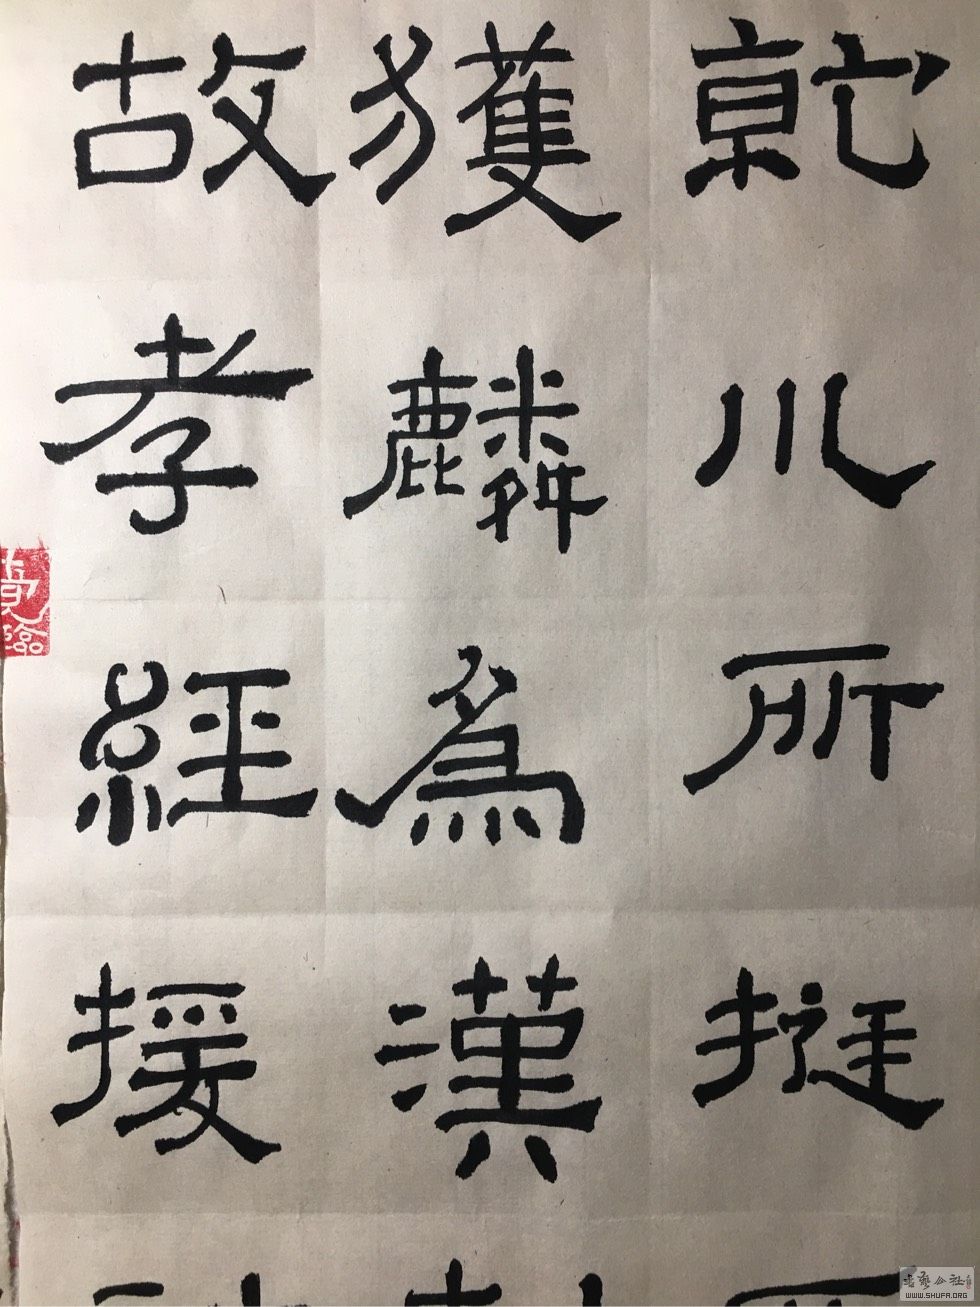 乾川所挺
獲麟爲漢
故孝經援
書藝公社
WWW.SHUFA.ORG